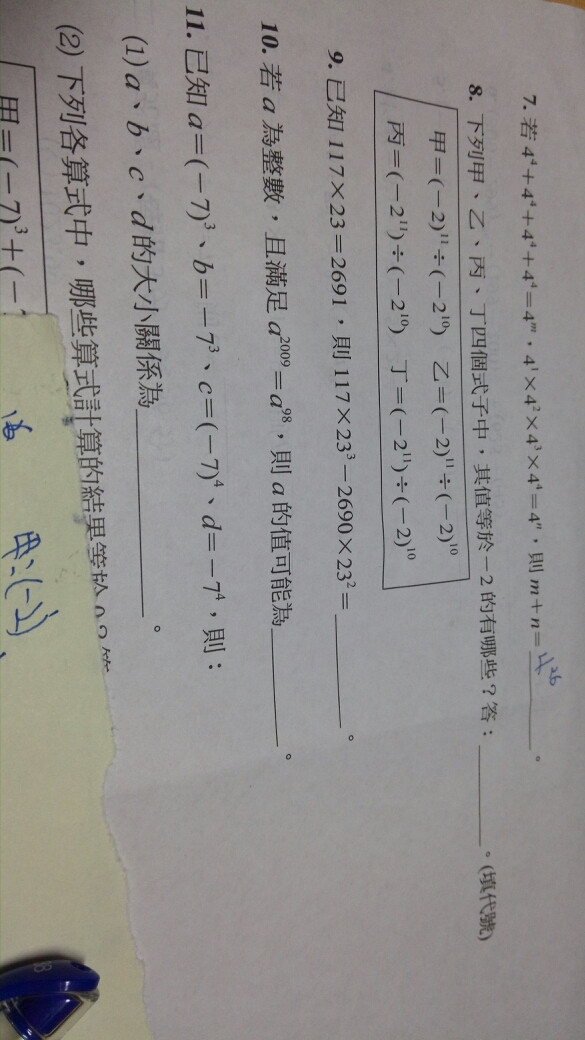 7. 若 4⁴＋4⁴＋4⁴＋4⁴＝4ᵐ，4¹×4²×4³×4⁴＝4ⁿ，則 m＋n＝4²⁶。
8. 下列甲、乙、丙、丁四個式子中，其值等於－2 的有哪些？答：。(填代號)
甲＝(－2)¹¹÷(－2¹⁰) 乙＝(－2)¹¹÷(－2)¹⁰
丙＝(－2¹¹)÷(－2¹⁰) 丁＝(－2¹¹)÷(－2)¹⁰
9. 已知 117×23＝2691，則 117×23³－2690×23²＝。
10. 若 a 為整數，且滿足 a²⁰⁰⁹＝a⁹⁸，則 a 的值可能為。
11. 已知 a＝(－7)³、b＝－7³、c＝(－7)⁴、d＝－7⁴，則：
(1) a、b、c、d 的大小關係為。
(2) 下列各算式中，哪些算式計算的結果等於 0？答
甲＝(－7)³＋(－
甲:(-2)